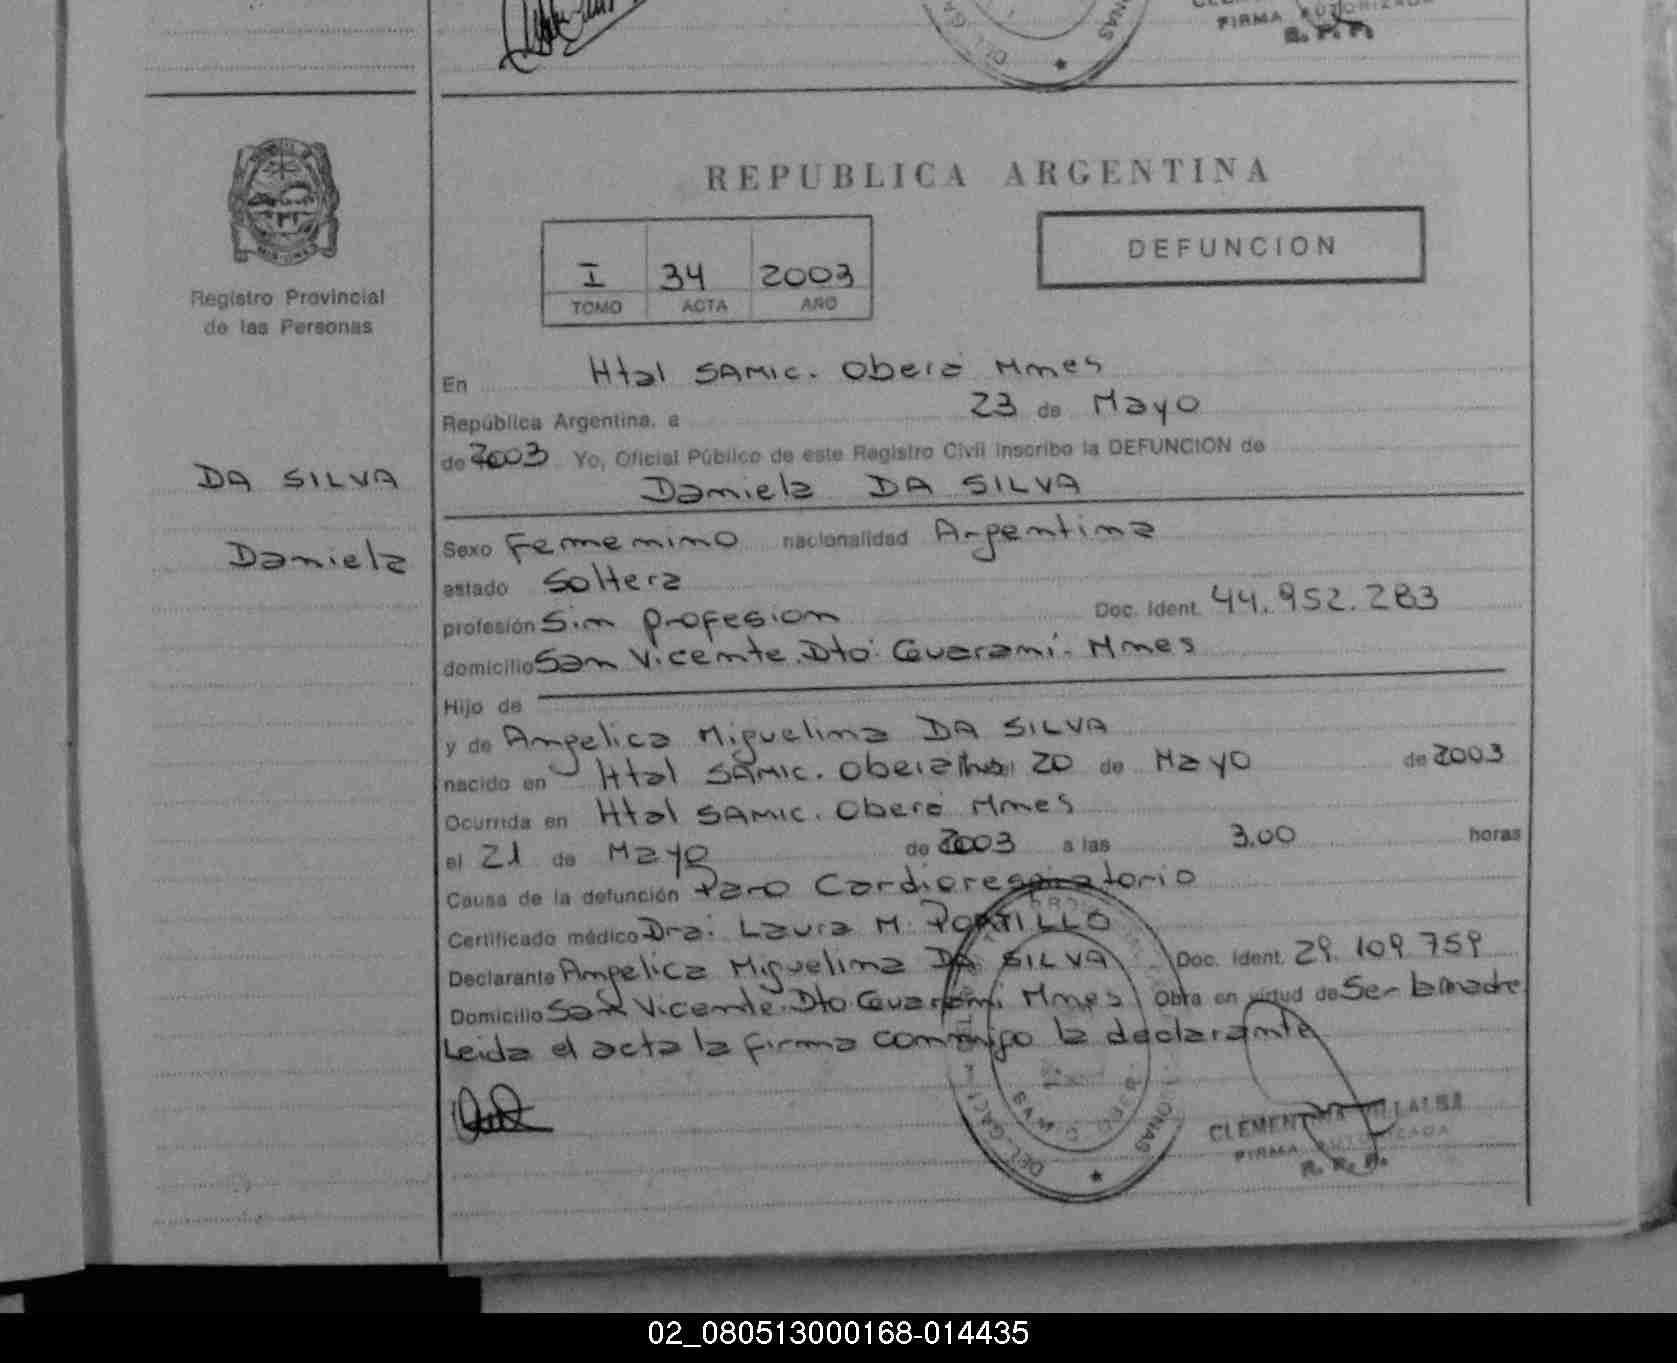 FIRMA AUTORIZADA
R. P. P.
REPUBLICA ARGENTINA
I 34 2003
TOMO ACTA AÑO
DEFUNCION
Registro Provincial
de las Personas
DA SILVA
Daniela
En Htal SAMIC. Oberá Mnes
República Argentina, a 23 de Mayo
de 2003 Yo, Oficial Público de este Registro Civil inscribo la DEFUNCION de
Daniela DA SILVA
Sexo Femenino nacionalidad Argentina
estado Soltera
profesión Sin profesion Doc. Ident. 44.952.283
domicilio San Vicente. Dto. Guarani. Mnes
Hijo de
y de Angelica Miguelina DA SILVA
nacido en Htal SAMIC. Oberá Mnes 20 de Mayo de 2003
Ocurrida en Htal SAMIC. Oberá Mnes
el 21 de Mayo de 2003 a las 3.00 horas
Causa de la defunción Paro Cardiorespiratorio
Certificado médico Dra. Laura M. PORTILLO
Declarante Angelica Miguelina DA SILVA Doc. Ident. 29.109.759
Domicilio San Vicente. Dto. Guarani Mnes Obra en virtud de Ser la madre
Leida el acta la firma conmigo la declarante
CLEMENTINA VILLALBA
FIRMA AUTORIZADA
R. P. P.
02_080513000168-014435